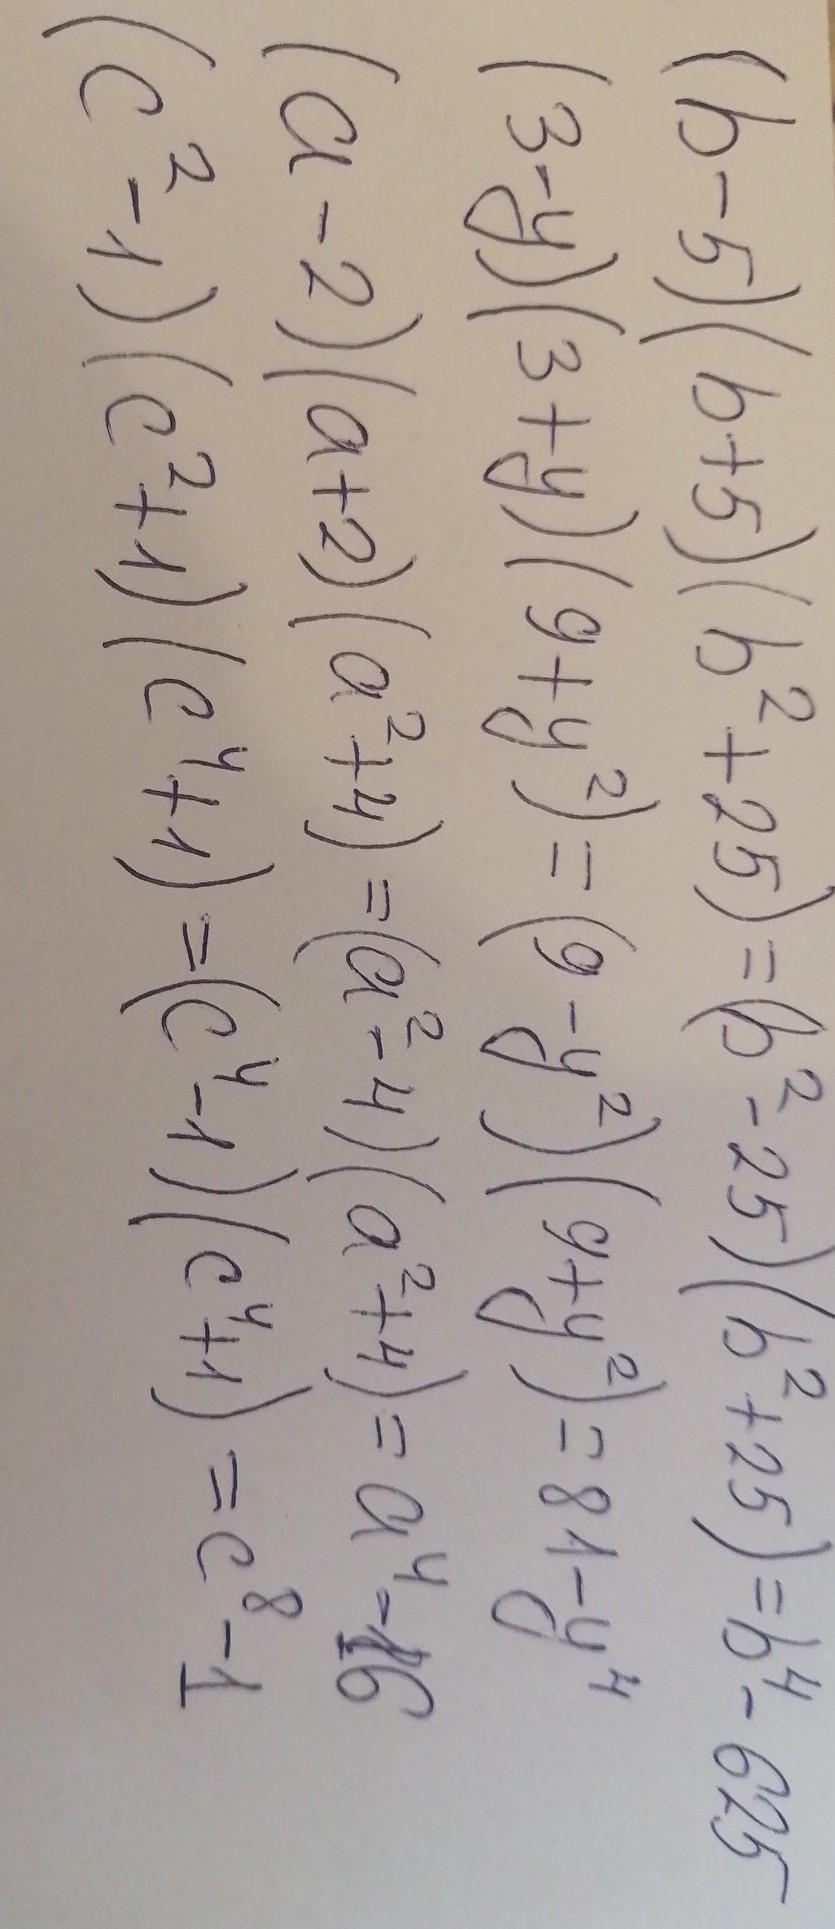 (b-5)(b+5)(b²+25)=(b²-25)(b²+25)=b⁴-625
(3-y)(3+y)(9+y²)=(9-y²)(9+y²)=81-y⁴
(a-2)(a+2)(a²+4)=(a²-4)(a²+4)=a⁴-16
(c²-1)(c²+1)(c⁴+1)=(c⁴-1)(c⁴+1)=c⁸-1